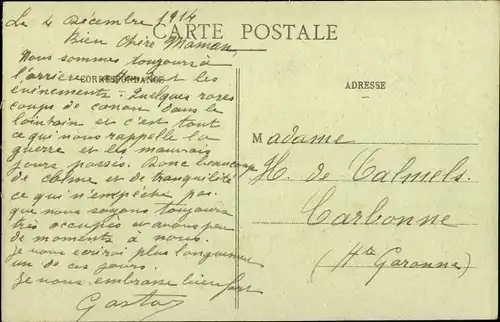 Le 4 Décembre 1914
CARTE POSTALE
Bien Chère Maman,
Nous sommes toujours à
l'arrière les
CORRESPONDANCE
évènements - Quelques rares
coups de canon dans le
lointain et c'est tout
ce qui nous rappelle la
guerre et les mauvais
jours passés. Donc beaucoup
de calme et de tranquilité
ce qui n'empêche pas
que nous soyons toujours
très occupés et avons peu
de moments à nous.
Je vous écrirai plus longuement
un de ces jours.
Je vous embrasse bien fort
Gaston
ADRESSE
Madame
H. de Talmels
Carbonne
(Hte Garonne)